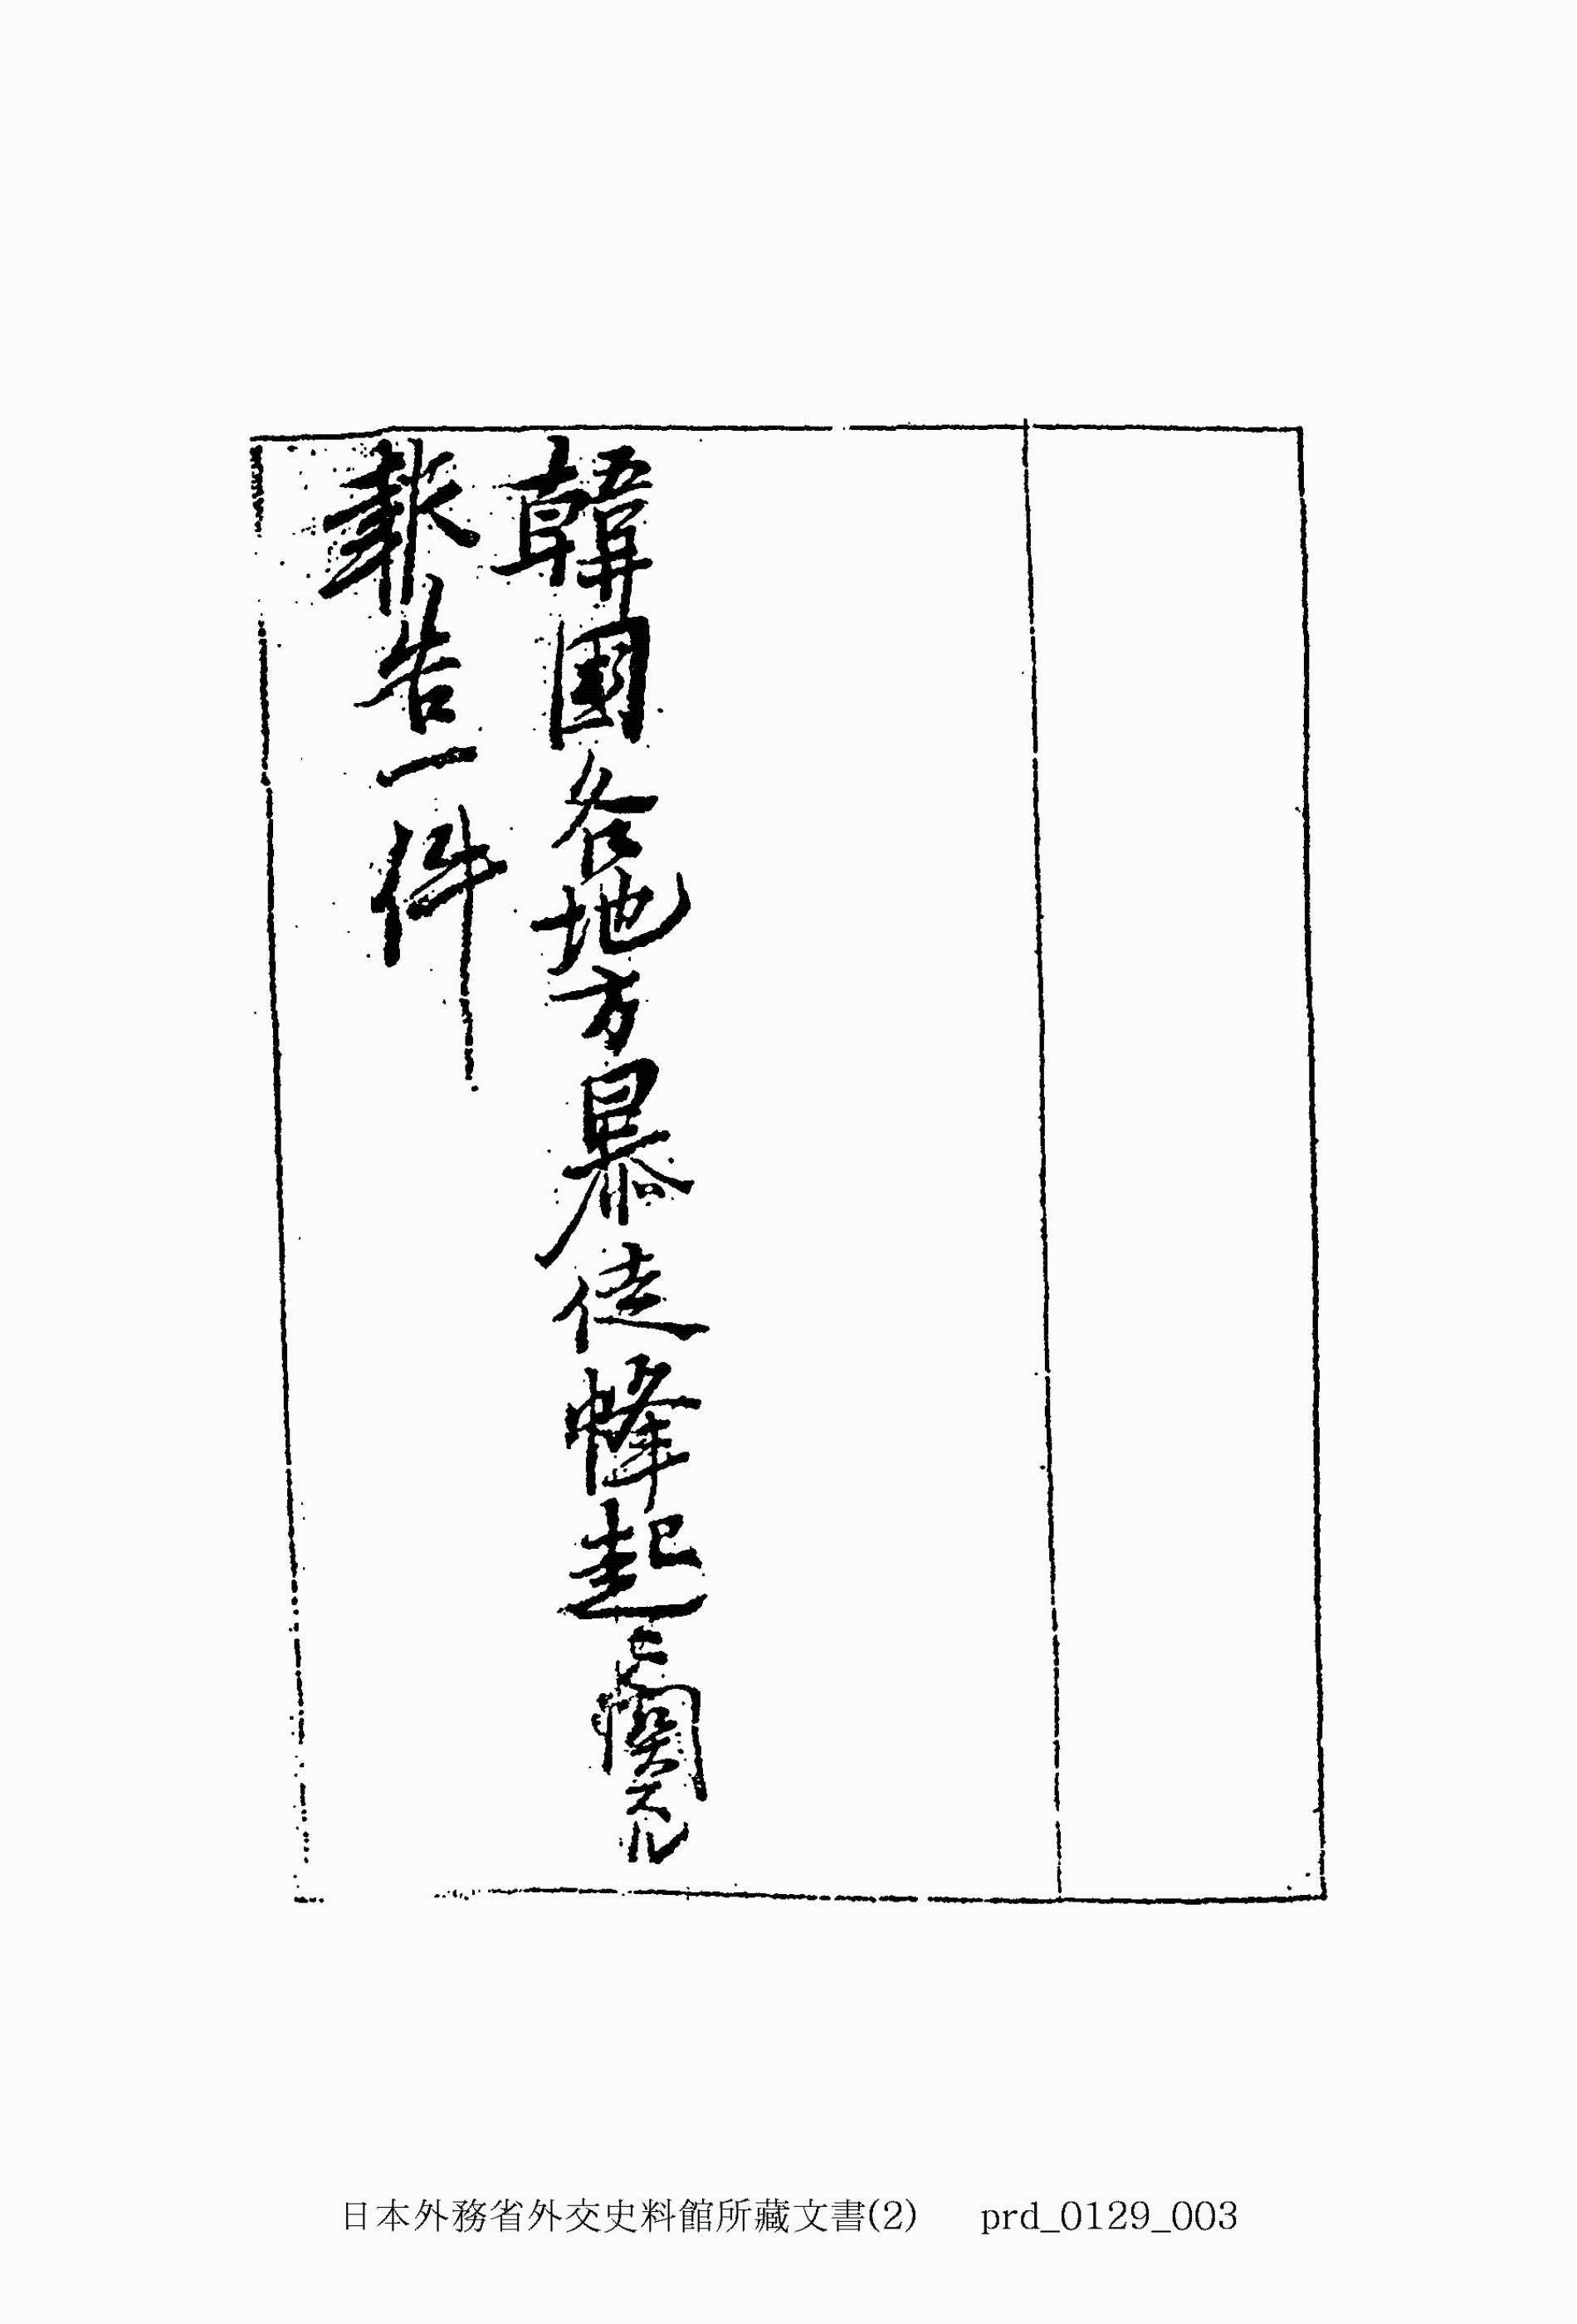 韓国各地方暴徒蜂起ニ関スル
報告一件
日本外務省外交史料館所藏文書(2) prd_0129_003